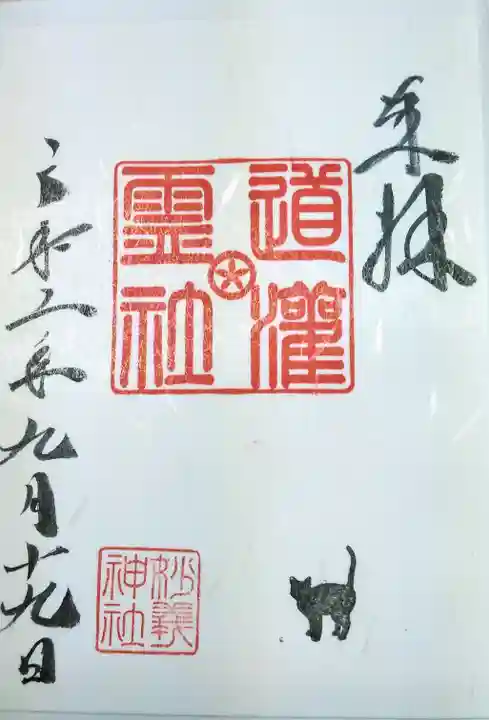 奉拝
道灌
霊社
妙義
神社
令和二年九月十九日